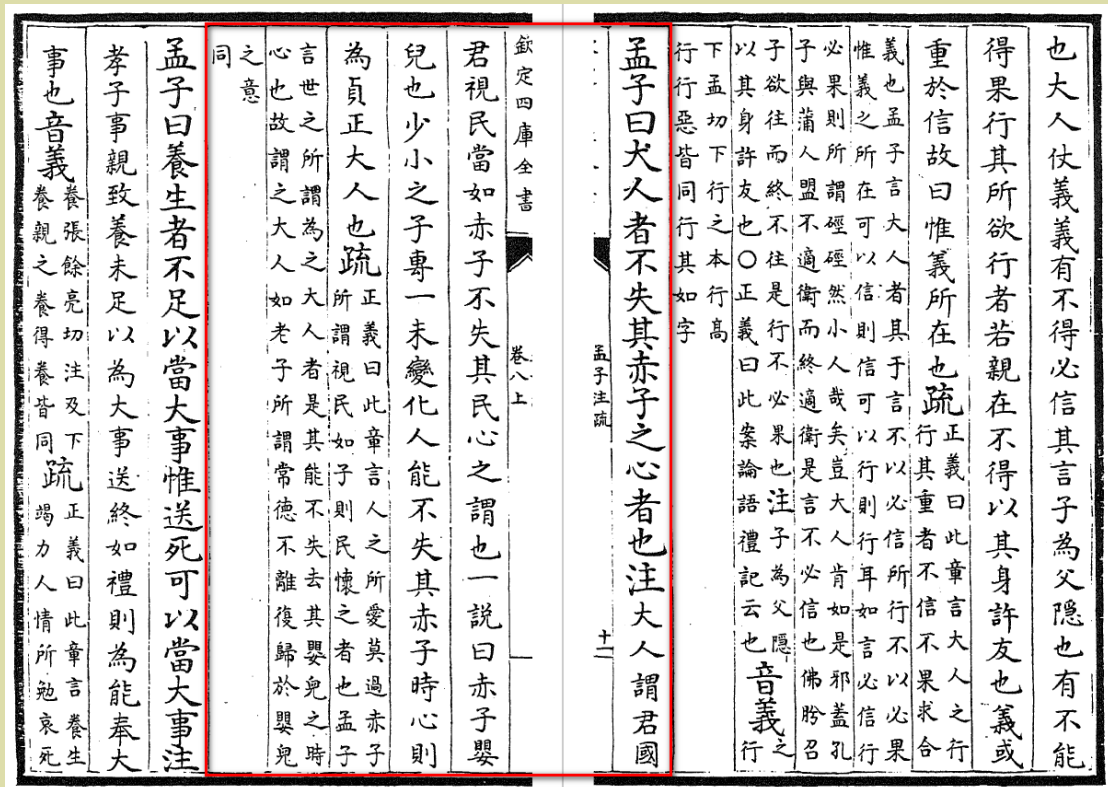 也大人仗義義有不得必信其言子為父隠也有不能
得果行其所欲行者若親在不得以其身許友也義或
重於信故曰惟義所在也疏正義曰此章言大人之行
行其重者不信不果求合
義也孟子言大人者其于言不以必信所行不以必果
惟義之所在可以信則信可以行則行耳如言必信行
必果則所謂硜硜然小人哉矣豈大人肯如是邪蓋孔
子與蒲人盟不適衛而終適衛是言不必信也佛肸召
子欲往而終不往是行不必果也注子為父隠
以其身許友也〇正義曰此案論語禮記云也音義之
行
下孟切下行之本行高
行行惡皆同行其如字
孟子曰大人者不失其赤子之心者也注大人謂君國
孟子注疏
十一
欽定四庫全書
卷八上
君視民當如赤子不失其民心之謂也一説曰赤子嬰
兒也少小之子專一未變化人能不失其赤子時心則
為貞正大人也疏正義曰此章言人之所愛莫過赤子
所謂視民如子則民懷之者也孟子
言世之所謂為之大人者是其能不失去其嬰兒之時
心也故謂之大人如老子所謂常徳不離復歸於嬰兒
之意
同
孟子曰養生者不足以當大事惟送死可以當大事注
孝子事親致養未足以為大事送終如禮則為能奉大
事也音義養張餘亮切注及下
養親之養得養皆同疏正義曰此章言養生
竭力人情所勉哀死